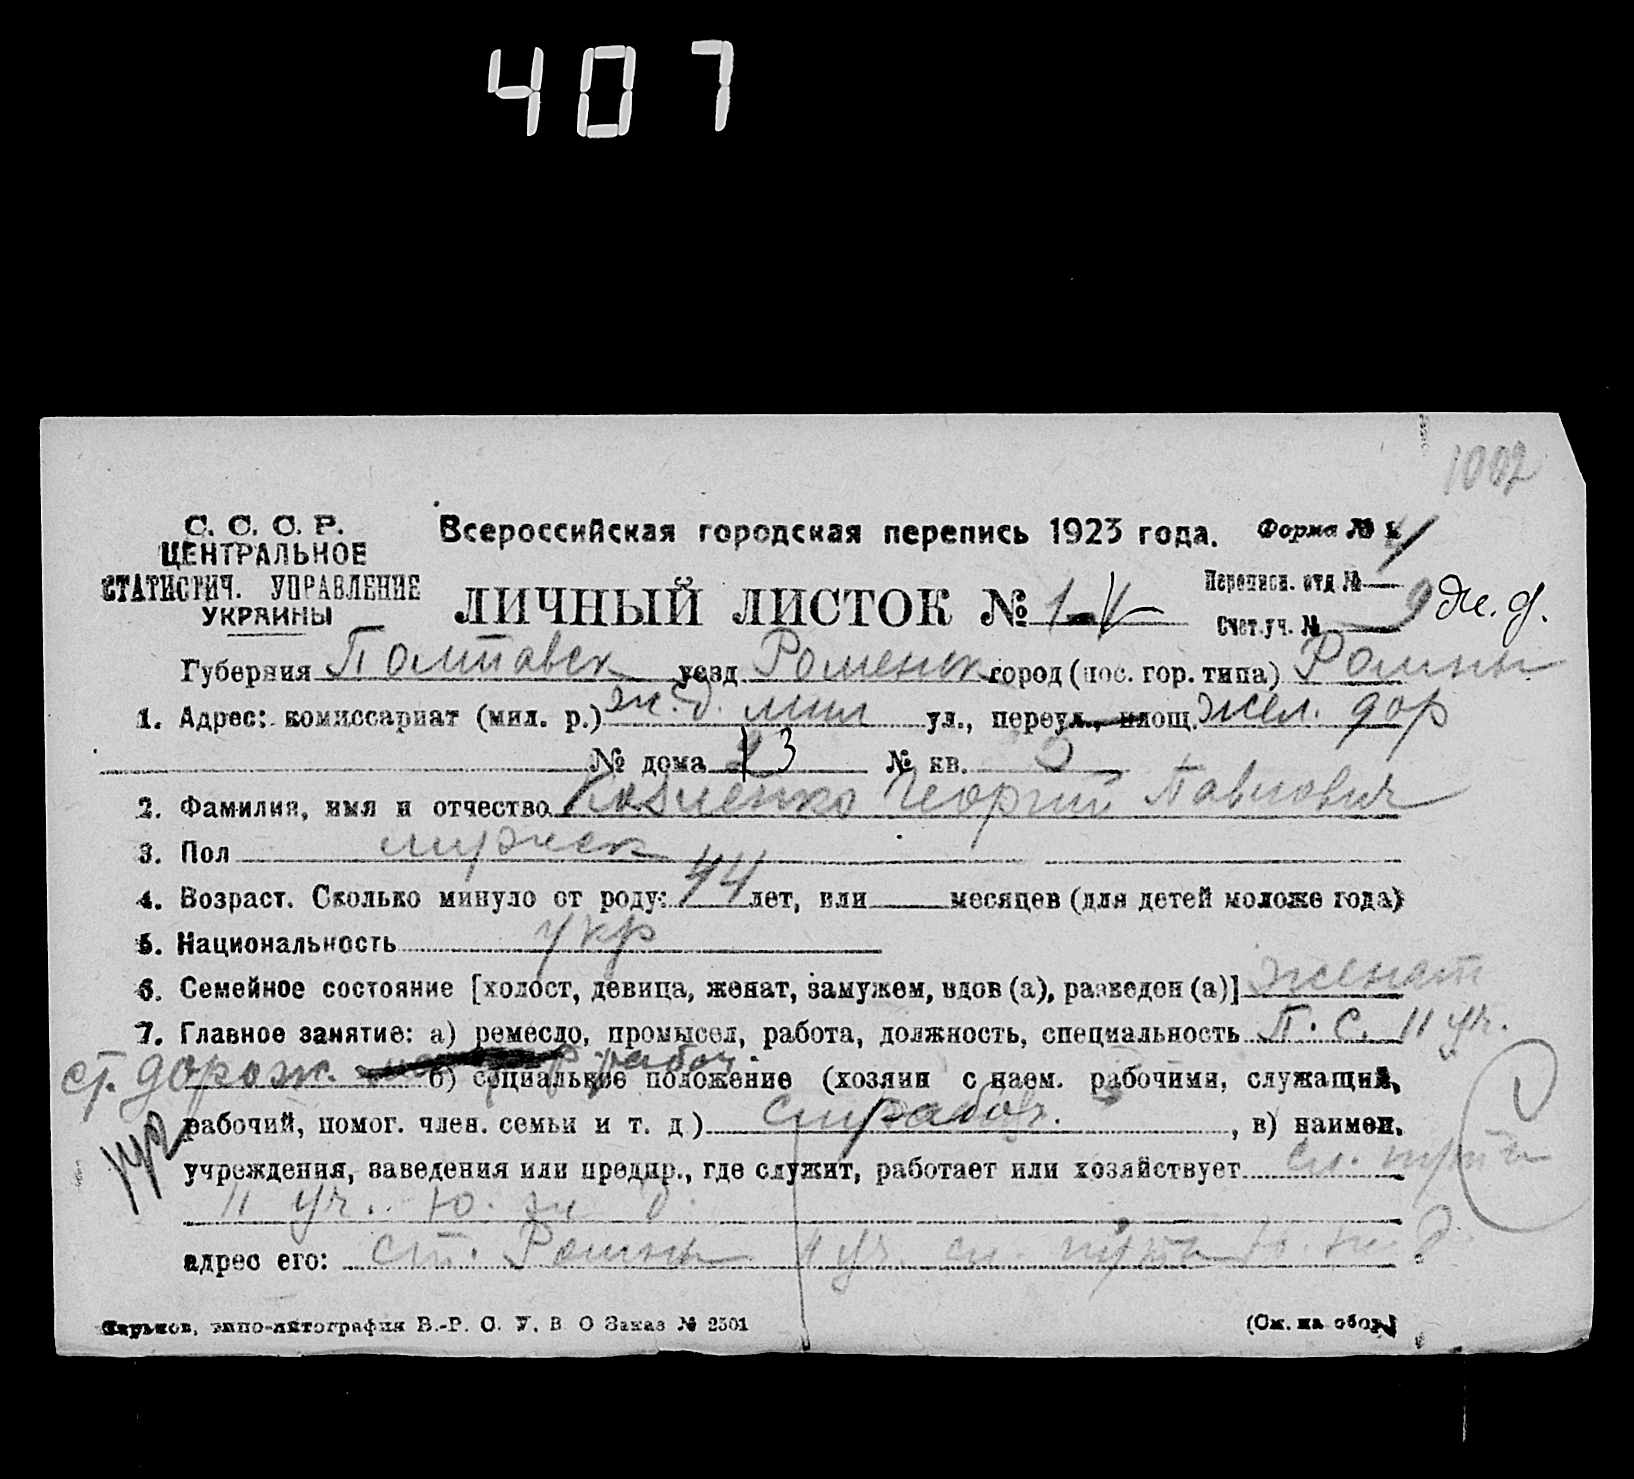 407
1002
С. С. С. Р.
ЦЕНТРАЛЬНОЕ
СТАТИСТИЧ. УПРАВЛЕНИЕ
УКРАИНЫ
Всероссийская городская перепись 1923 года. Форма №
ЛИЧНЫЙ ЛИСТОК № 1
Переписн. отд №
Счет.уч. № 9 ж. д.
Губерния Полтавск уезд Роменск город (пос. гор. типа) Ромны
1. Адрес: комиссариат (мил. р.) ж. д. мил ул., переул., площ. жел. дор
№ дома 13 № кв. 5
2. Фамилия, имя и отчество Георгий Павлович
3. Пол мужск
4. Возраст. Сколько минуло от роду: 44 лет, или месяцев (для детей моложе года)
5. Национальность укр
6. Семейное состояние [холост, девица, женат, замужем, вдов (а), разведен (а)] женат
7. Главное занятие: а) ремесло, промысел, работа, должность, специальность П. С. 11 уч.
ст. дорож. рабоч.
б) социальное положение (хозяин с наем. рабочими, служащий,
рабочий, помог. член. семьи и т. д) рабоч. , в) наимен.
учреждения, заведения или предпр., где служит, работает или хозяйствует сл. пути
11 уч. Ю. ж д.
адрес его: ст. Ромны 11 уч. сл. пути Ю. ж. д.
Харьков, типо-литография В.-Р. С. У. В О Заказ № 2501
(См. на обор.)